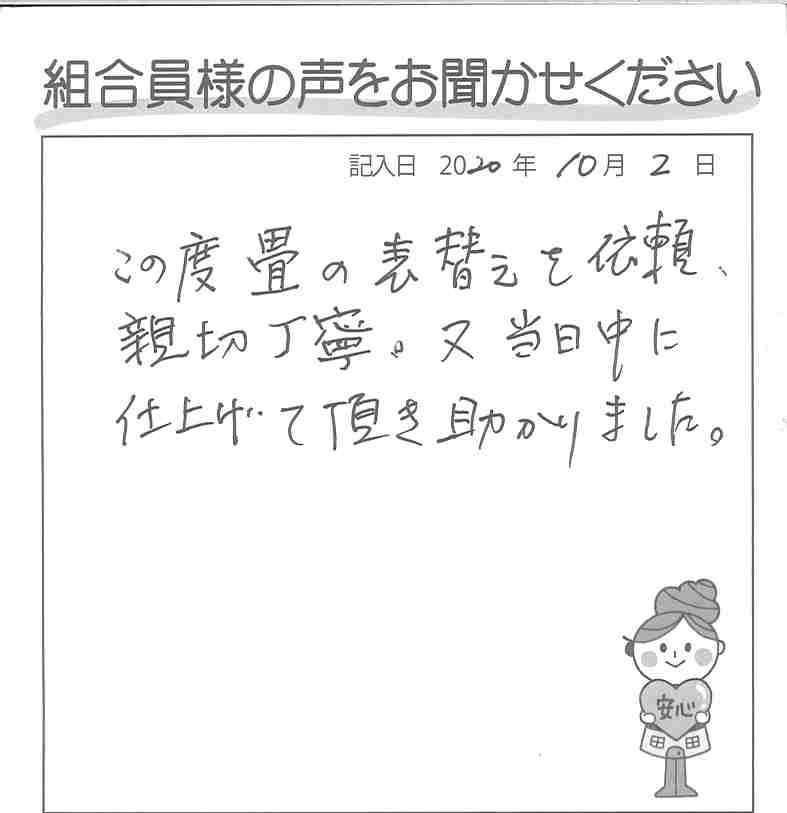 組合員様の声をお聞かせください
記入日 2020年 10月 2日
この度畳の表替えを依頼、
親切丁寧。又当日中に
仕上げて頂き助かりました。
安心